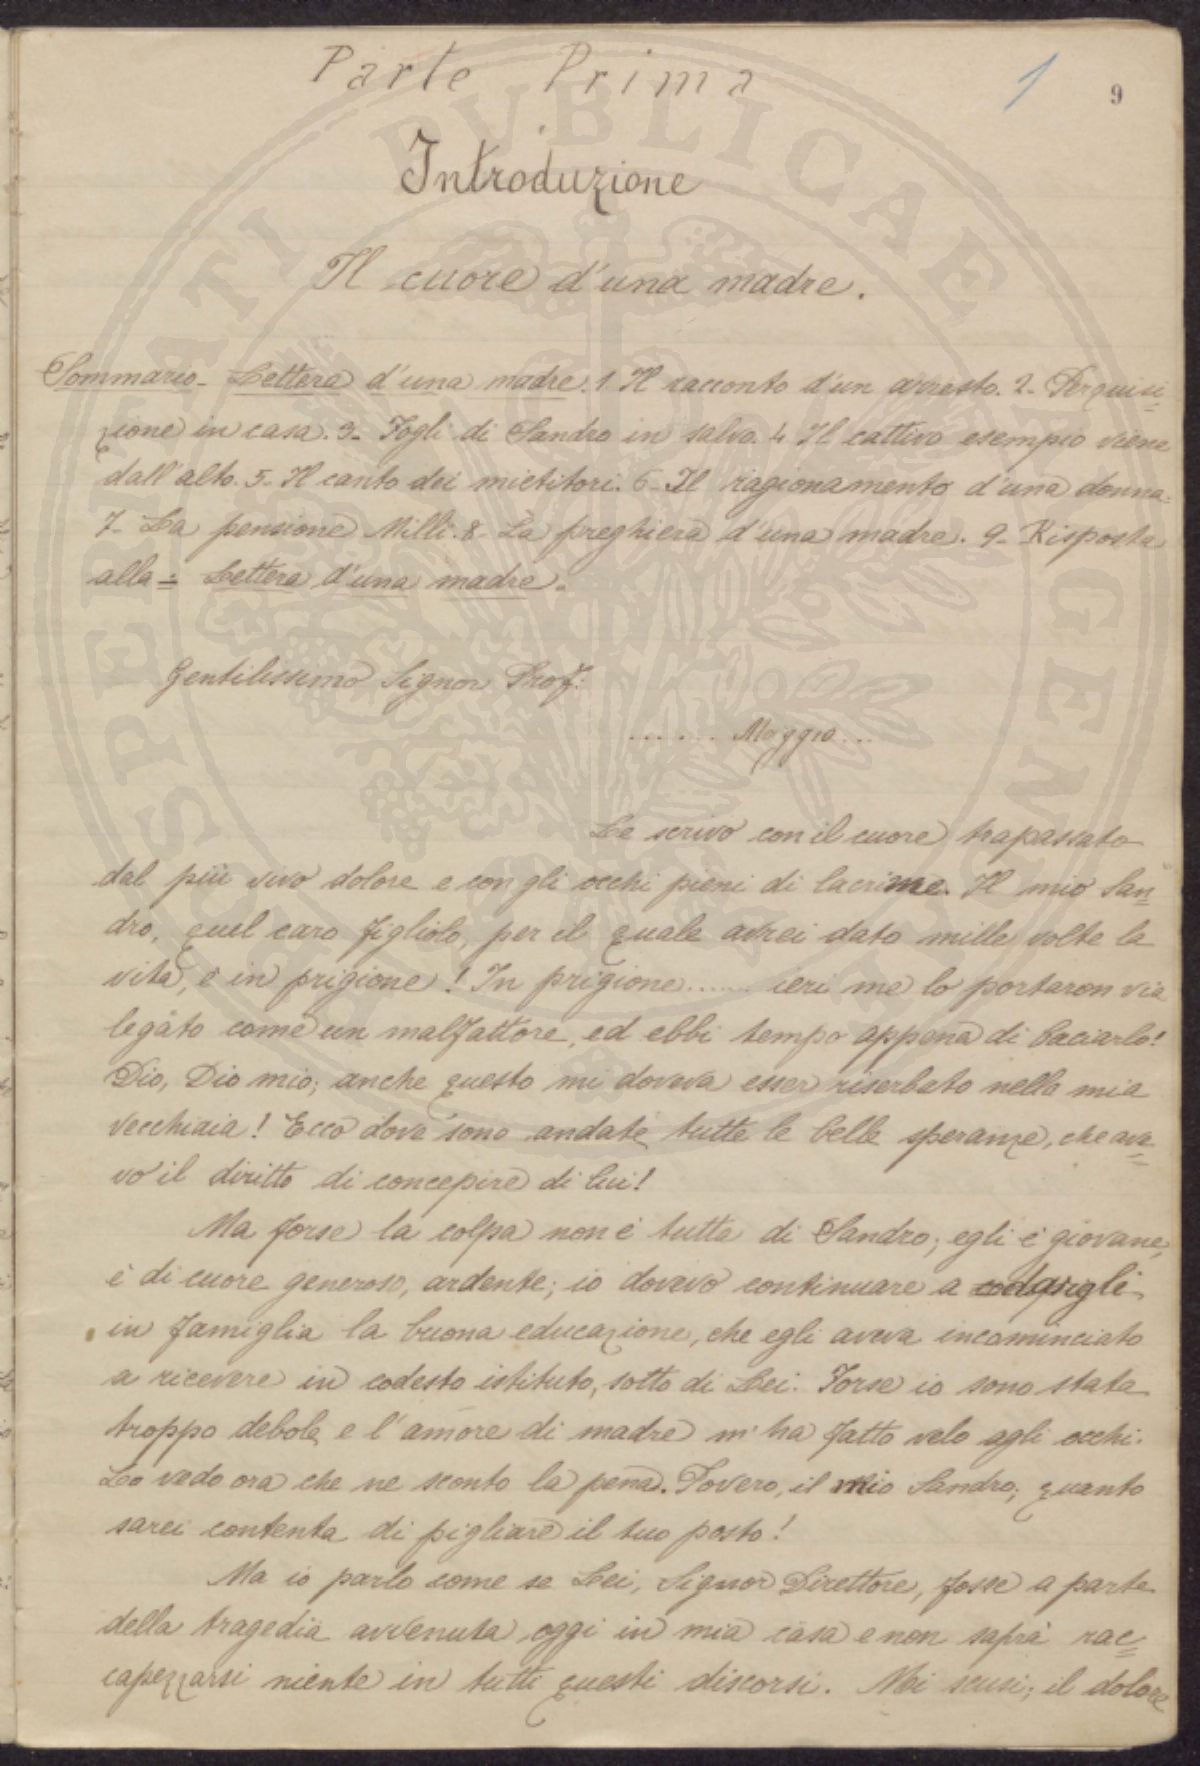 Parte Prima
1 9
Introduzione
Il cuore d'una madre.
Sommario - Lettera d'una madre. 1 Il racconto d'un arresto. 2 - Perquisi=
zione in casa. 3 - Fogli di Sandro in salvo. 4 Il cattivo esempio viene
dall'alto. 5 - Il canto dei mietitori. 6 - Il ragionamento d'una donna.
7 - La pensione Milli. 8 - La preghiera d'una madre. 9 - Risposta
alla = Lettera d'una madre.
Gentilissimo Signor Prof:
...... Maggio ...
Le scrivo con il cuore trapassato
dal più vivo dolore e con gli occhi pieni di lacrime. Il mio San=
dro, quel caro figliolo, per il quale avrei dato mille volte la
vita, è in prigione! In prigione ....... ieri me lo portaron via
legato come un malfattore, ed ebbi tempo appena di baciarlo!
Dio, Dio mio; anche questo mi doveva esser riserbato nella mia
vecchiaia! Ecco dove sono andate tutte le belle speranze, che ave=
vo il diritto di concepire di lui!
Ma forse la colpa non è tutta di Sandro; egli è giovane,
è di cuore generoso, ardente; io dovevo continuare a
in famiglia la buona educazione, che egli aveva incominciato
a ricevere in codesto istituto, sotto di Lei. Forse io sono stata
troppo debole e l'amore di madre m'ha fatto velo agli occhi.
Lo vedo ora che ne sconto la pena. Povero, il mio Sandro; quanto
sarei contenta di pigliare il tuo posto!
Ma io parlo come se Lei, Signor Direttore, fosse a parte
della tragedia avvenuta oggi in mia casa e non saprà rac=
capezzarsi niente in tutti questi discorsi. Mi scusi; il dolore
PUBLICAE